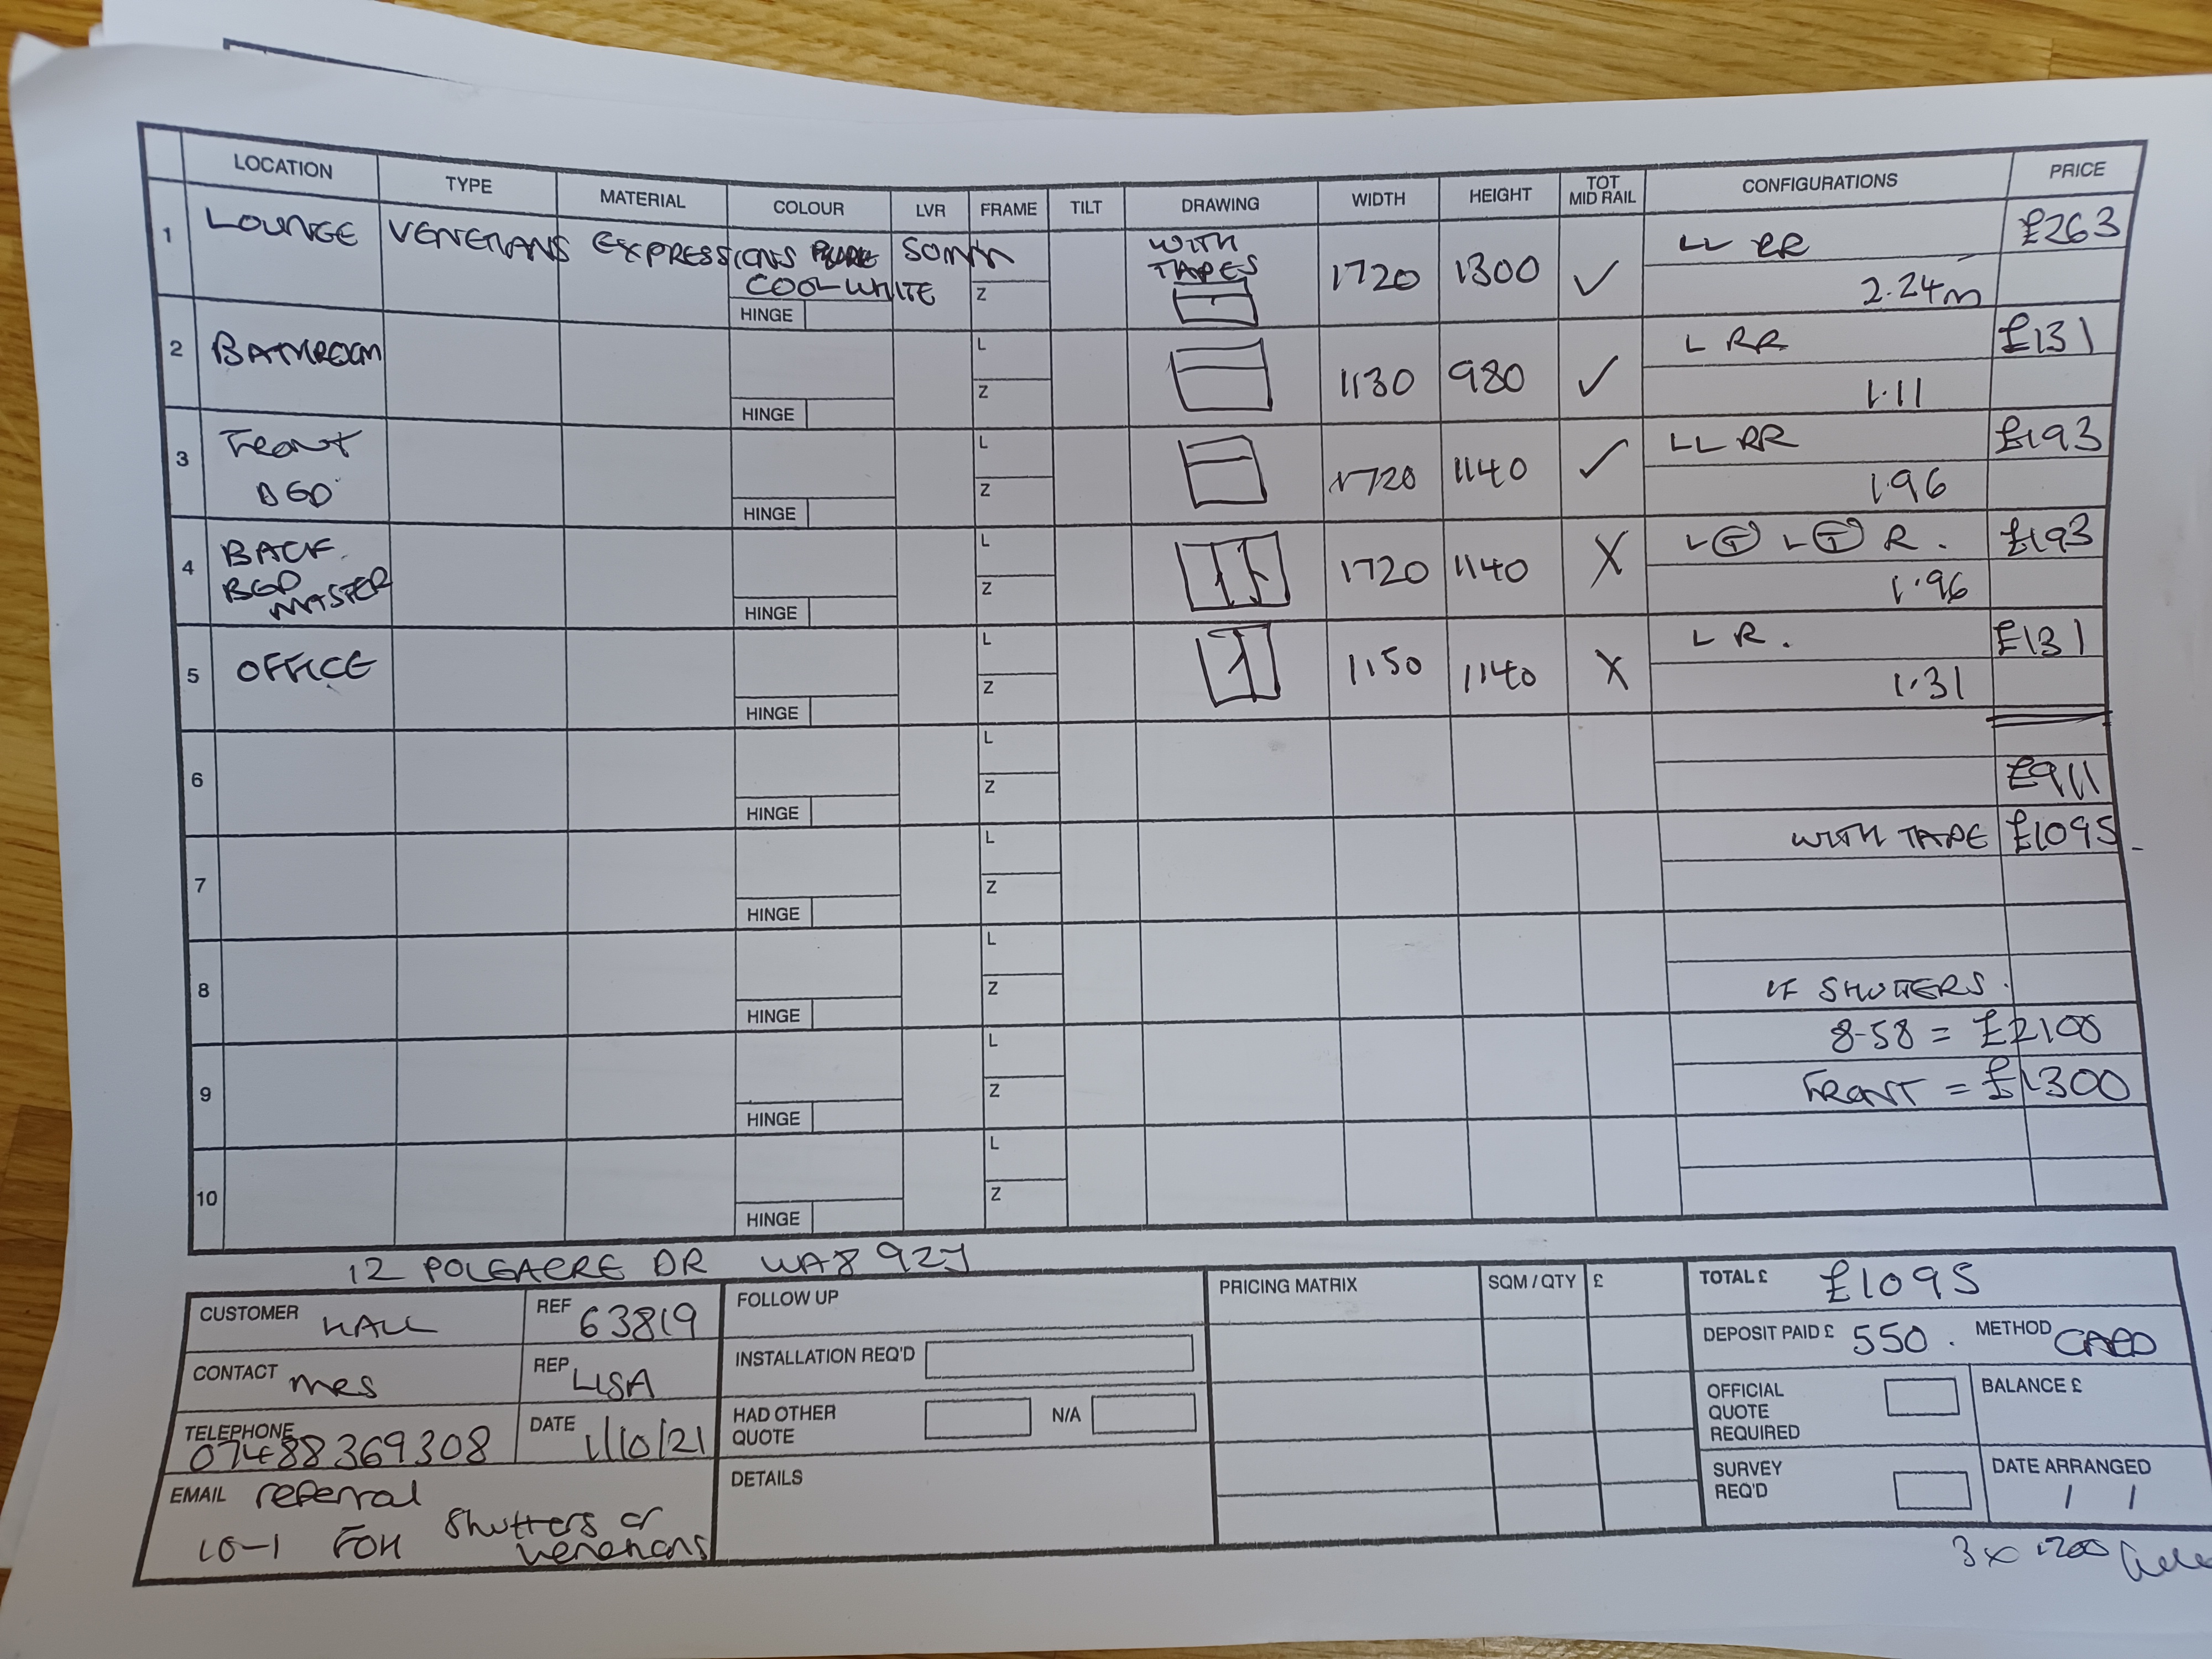 LOCATION TYPE MATERIAL COLOUR LVR FRAME TILT DRAWING WIDTH HEIGHT TOT MID RAIL CONFIGURATIONS PRICE
1 LOUNGE VENETIANS EXPRESSIONS PURE 50mm WITH TAPES 1720 1300 ✓ LL RR £263
COOL WHITE Z 2.24m
HINGE
2 BATHROOM L 1130 980 ✓ L RR £131
Z 1.11
HINGE
3 FRONT BED L 1720 1140 ✓ LL RR £193
Z 1.96
HINGE
4 BACK BED MASTER L 1720 1140 X L T L T R. £193
Z 1.96
HINGE
5 OFFICE L 1150 1140 X L R. £131
Z 1.31
HINGE
6 L
Z £911
HINGE
7 L WITH TAPE £1095
Z
HINGE
8 L
Z IF SHUTTERS.
HINGE
9 L 8.58 = £2100
Z FRONT = £1300
HINGE
10 L
Z
HINGE
12 POLEACRE DR WA8 9ZJ
CUSTOMER HALL REF 63819
CONTACT MRS REP LISA
TELEPHONE 07488369308 DATE 1/10/21
EMAIL referral
10-1 FOH Shutters or venetians
FOLLOW UP
INSTALLATION REQ'D
HAD OTHER QUOTE N/A
DETAILS
PRICING MATRIX SQM / QTY £
TOTAL £ £1095
DEPOSIT PAID £ 550. METHOD CARD
OFFICIAL QUOTE REQUIRED BALANCE £
SURVEY REQ'D DATE ARRANGED / /
3 x 1200